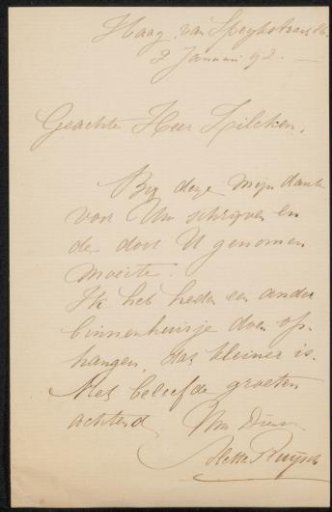 Haag, van Speykstraat 16,
2 Januari 92.
Geachte Heer Zilcken,
Bij deze mijn dank
voor Uw schrijven en
de door U genomen
moeite.
Ik heb heden een ander
binnenhuisje doen op-
hangen, dat kleiner is.
Met beleefde groeten
achtend Uw Dienr.
Ruijsch